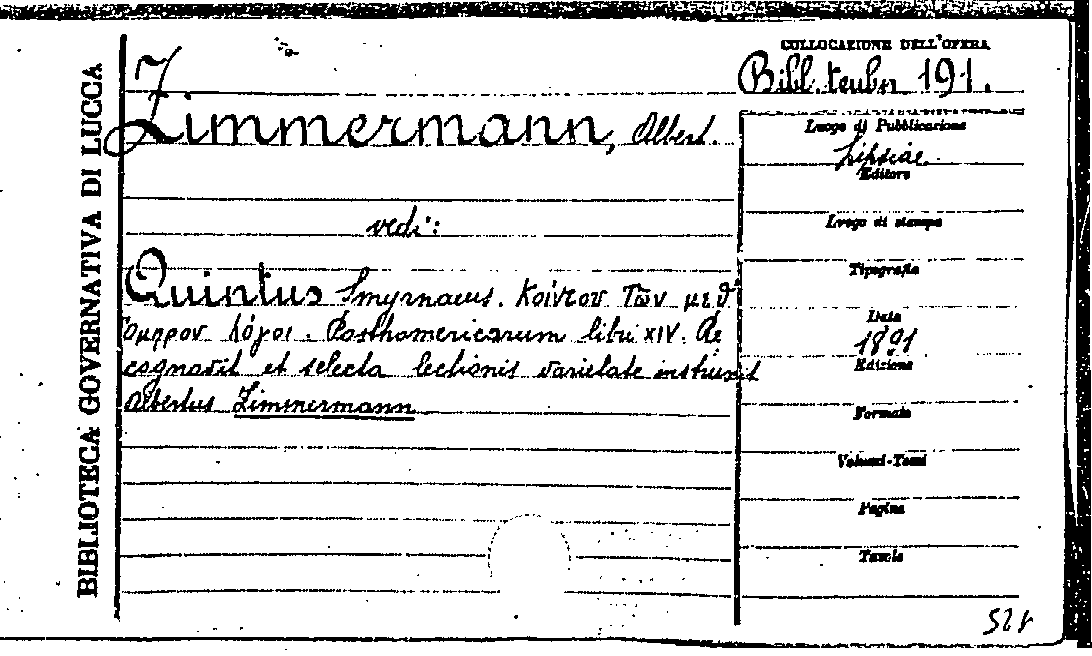 BIBLIOTECA GOVERNATIVA DI LUCCA
COLLOCAZIONE DELL'OPERA
Bibl. teubn 191.
Zimmermann, Albert.
vedi:
Quintus Smyrnaeus. Κοίντου Τῶν μεθ'
Ὅμηρον λόγοι. Posthomericorum libri XIV. Re
cognovit et selecta lectionis varietate instruxit
Albertus Zimmermann
Luogo di Pubblicazione
Lipsiae
Editore
Luogo di stampa
Tipografia
Data
1891
Edizione
Formato
Volumi-Tomi
Pagine
Tavole